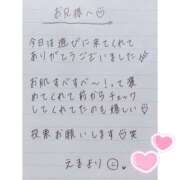 お兄様へ♡
今日は遊びに来てくれて
ありがとうございました
お肌すべすべ〜！って褒
めてくれて前からチェック
してくれてたのも嬉しい♡
投票お願いします♡笑
えまより